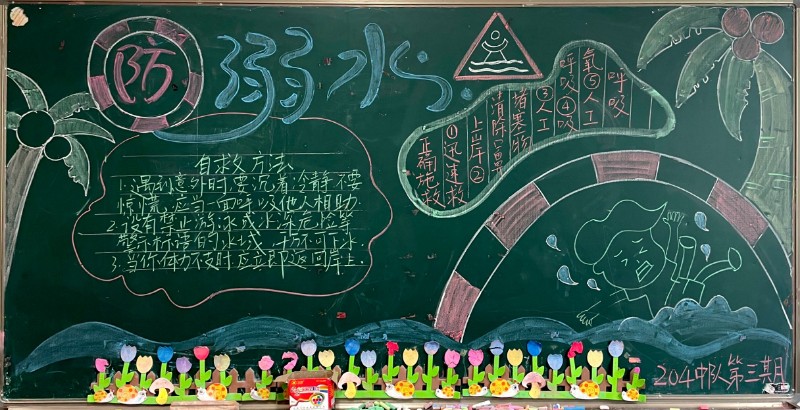 防溺水
自救方法
1.遇到意外时要沉着冷静不要
惊慌,应当一面呼吸他人相助
2.没有禁止游泳或水深危险等
警示标语的水域,切不可下水
3.当你体力不支时应立即返回岸上.
正确施救
①迅速救
上岸②
清除口鼻
堵塞物
③人工
呼吸④吸
氧⑤人工
呼吸
204中队第三期